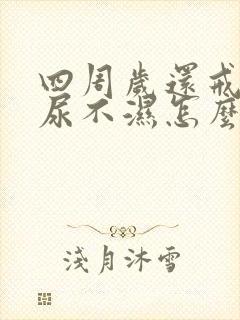 四周歲還戒
尿不濕怎麼
淺月沐雪